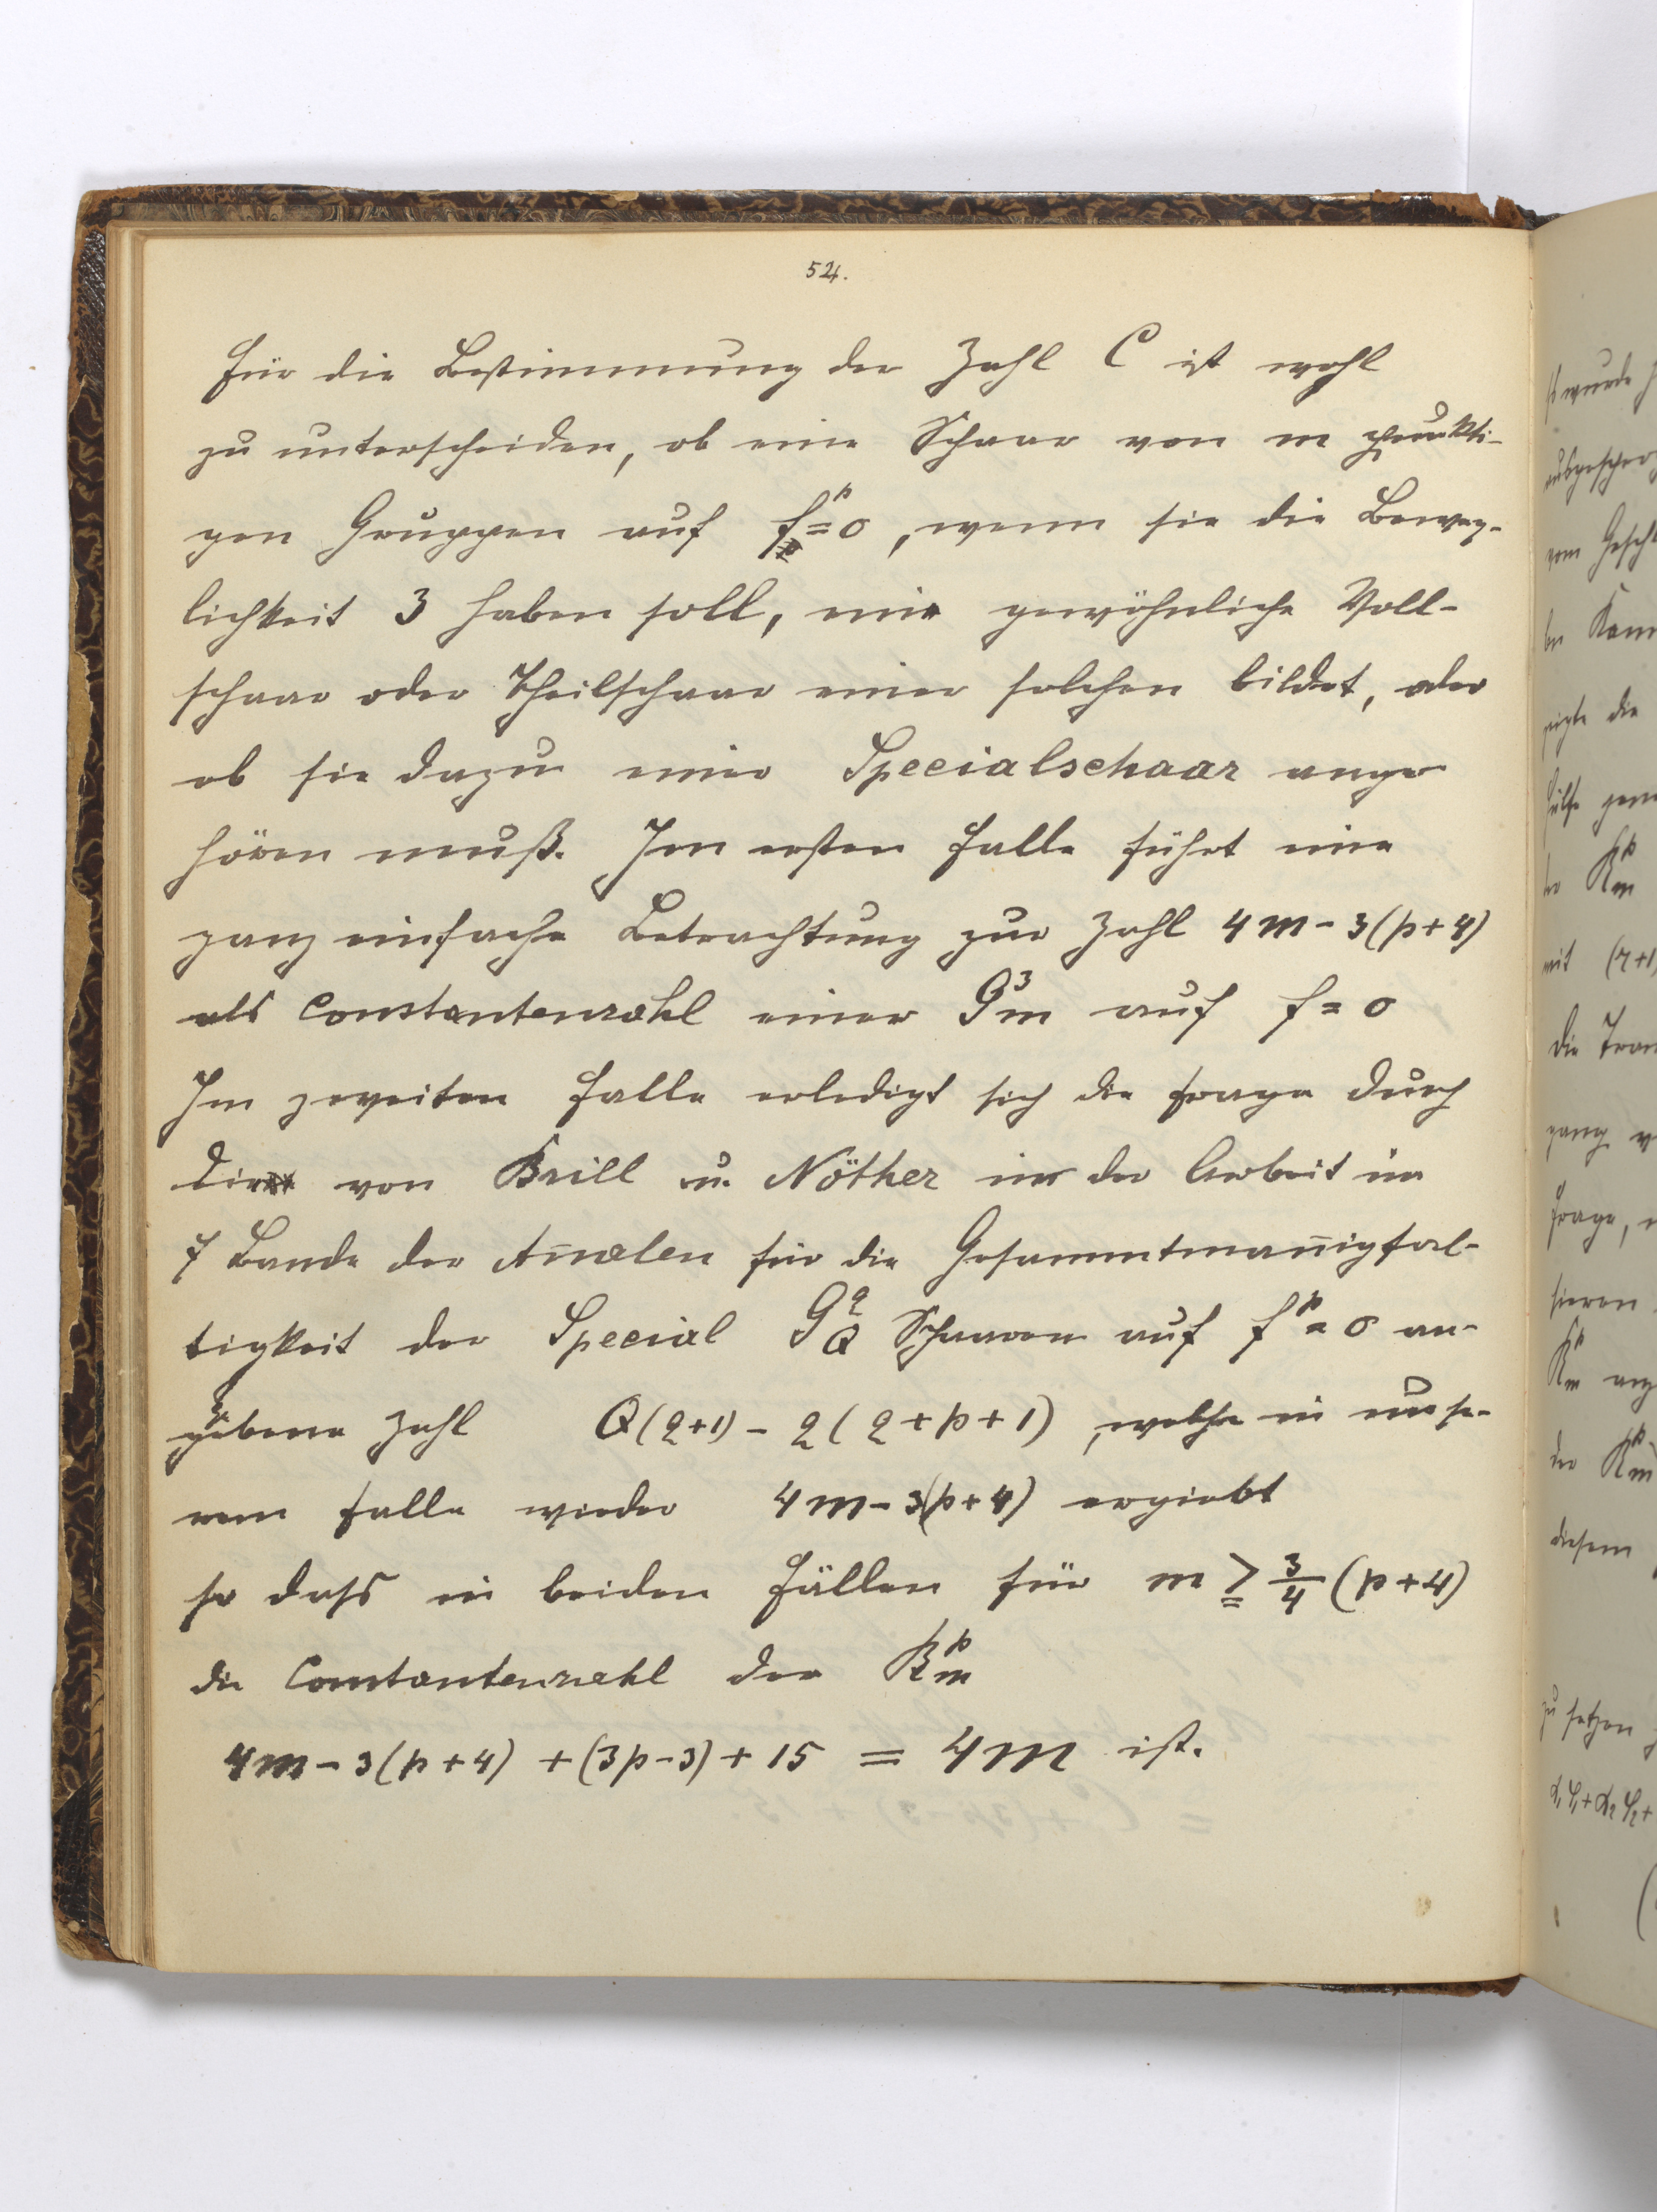 54.
Für die Bestimmung der Zahl C ist wohl
zu unterscheiden, ob eine Schaar von m punkti-
gen Gruppen auf f^p=0, wenn sie die Beweg-
lichkeit 3 haben soll, eine gewöhnliche Voll-
schaar oder Theilschaar einer solchen bildet, oder
ob sie dazu einer Specialschaar ange
hören muß. Im ersten Falle führt eine
ganz einfache Betrachtung zur Zahl 4m-3(p+4)
als Constantenzahl einer G^3_m auf f=0
Im zweiten Falle erledigt sich die Frage durch
die von Brill u. Nöther in der Arbeit im
7 Bande der An̄alen für die Gesammtman̄igfal-
tigkeit der Special G^q_Q Schaaren auf f^p=0 an-
gebene Zahl Q(q+1)-q(q+p+1), welche in unse-
rem Falle wieder 4m-3(p+4) ergiebt
so dass in beiden Fällen für m ≧ 3/4 (p+4)
die Constantenzahl der R^p_m
4m-3(p+4)+(3p-3)+15 = 4m ist.
so wurde
vom Gesch
zeigte die
Hülfe
R^p_m
mit (r+1)
die
gang
Frage,
R^p_m
der R^p_m
diesem
zu setzen
α₁φ₁+α₂φ₂+